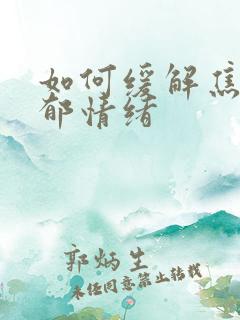 如何缓解焦
郁情绪
郭炳生
未经同意禁止转载